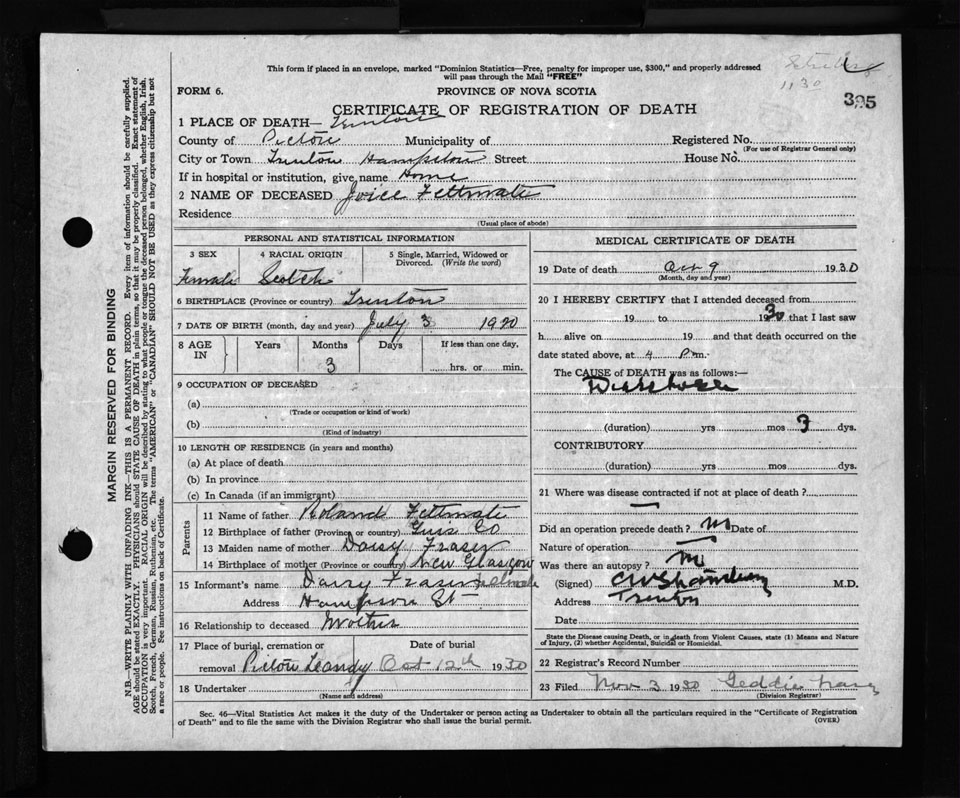 This form if placed in an envelope, marked "Dominion Statistics—Free, penalty for improper use, $300," and properly addressed
will pass through the Mail "FREE"
1130
395
FORM 6.
PROVINCE OF NOVA SCOTIA
CERTIFICATE OF REGISTRATION OF DEATH
1 PLACE OF DEATH— Trenton
County of Pictou Municipality of Registered No.
(For use of Registrar General only)
City or Town Trenton Hampston Street House No.
If in hospital or institution, give name Home
2 NAME OF DECEASED Joice Feltmate
Residence
(Usual place of abode)
PERSONAL AND STATISTICAL INFORMATION
3 SEX 4 RACIAL ORIGIN 5 Single, Married, Widowed or Divorced. (Write the word)
Female Scotch
6 BIRTHPLACE (Province or country) Trenton
7 DATE OF BIRTH (month, day and year) July 3 1930
8 AGE IN Years Months Days If less than one day,
3 hrs. or min.
9 OCCUPATION OF DECEASED
(a)
(Trade or occupation or kind of work)
(b)
(Kind of industry)
10 LENGTH OF RESIDENCE (in years and months)
(a) At place of death
(b) In province
(c) In Canada (if an immigrant)
Parents
11 Name of father Roland Feltmate
12 Birthplace of father (Province or country) Guys Co
13 Maiden name of mother Daisy Fraser
14 Birthplace of mother (Province or country) New Glasgow
15 Informant's name Daisy Fraser Feltmate
Address Hampson St
16 Relationship to deceased Mother
17 Place of burial, cremation or removal Date of burial
Pictou Landy Oct 12th 1930
18 Undertaker
(Name and address)
MEDICAL CERTIFICATE OF DEATH
19 Date of death Oct 9 1930
(Month, day and year)
20 I HEREBY CERTIFY that I attended deceased from
19 to 1930 that I last saw
h alive on 19 and that death occurred on the
date stated above, at 4 P.m.
The CAUSE of DEATH was as follows:—
Diarrhoea
(duration) yrs mos 3 dys.
CONTRIBUTORY
(duration) yrs. mos. dys.
21 Where was disease contracted if not at place of death?
Did an operation precede death? No Date of
Nature of operation
Was there an autopsy? No
(Signed) M.D.
Address Trenton
Date
State the Disease causing Death, or in death from Violent Causes, state (1) Means and Nature
of Injury, (2) whether Accidental, Suicidal or Homicidal.
22 Registrar's Record Number
23 Filed Nov 3 1930 Geddie
(Division Registrar)
Sec. 46—Vital Statistics Act makes it the duty of the Undertaker or person acting as Undertaker to obtain all the particulars required in the "Certificate of Registration
of Death" and to file the same with the Division Registrar who shall issue the burial permit.
(OVER)
MARGIN RESERVED FOR BINDING
N.B.—WRITE PLAINLY WITH UNFADING INK—THIS IS A PERMANENT RECORD. Every item of information should be carefully supplied.
AGE should be stated EXACTLY. PHYSICIANS should STATE CAUSE OF DEATH in plain terms, so that it may be properly classified. Exact statement of
OCCUPATION is very important. RACIAL ORIGIN will be described by stating to what people or tongue the deceased person belonged, whether English, Irish,
Scotch, French, German, Russian, Ruthenian, etc. The terms "AMERICAN" or "CANADIAN" SHOULD NOT BE USED as they express citizenship but not
a race or people. See instructions on back of Certificate.